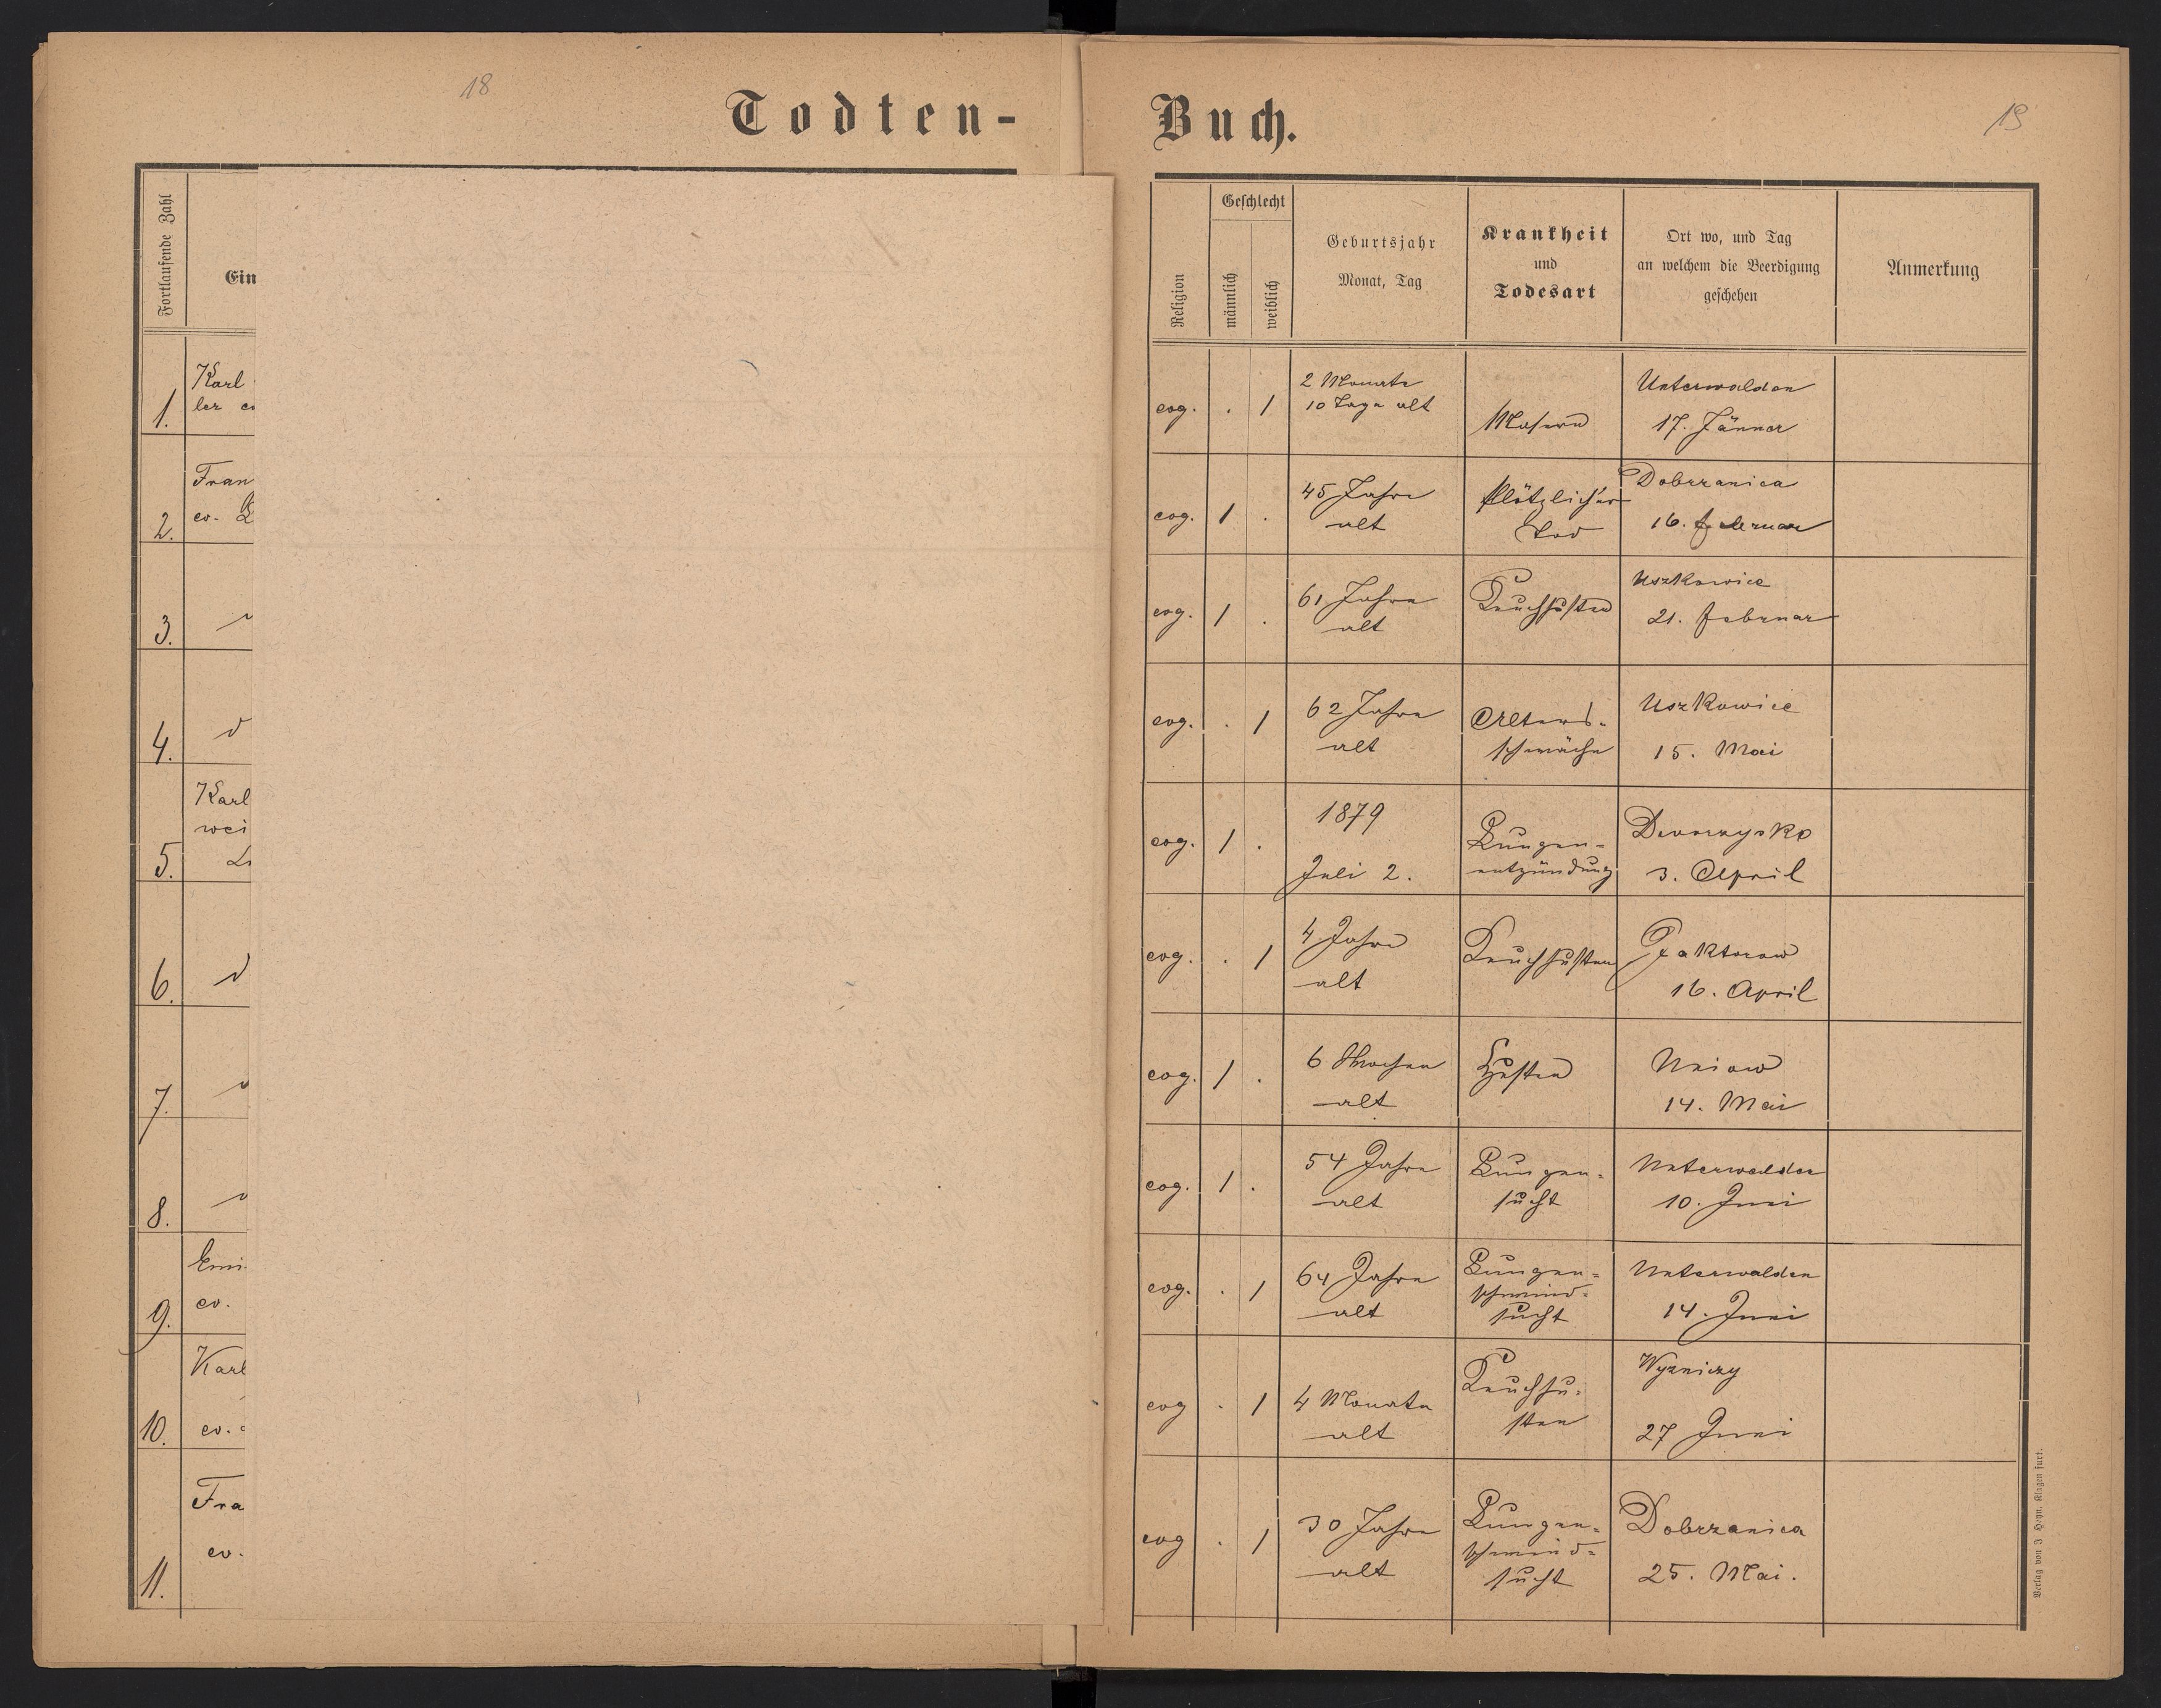 18
Todten-
Fortlaufende Zahl
Ein
1.
Karl
ler
2.
Fran
ev.
3.
4.
d
5.
Karl
wei
6.
d
7.
8.
9.
Emi
ev.
10.
Karl
ev.
11.
Fra
ev.
Buch.
19
Religion
Geschlecht
männlich
weiblich
Geburtsjahr
Monat, Tag
Krankheit
und
Todesart
Ort wo, und Tag
an welchem die Beerdigung
geschehen
Anmerkung
evg. . 1
2 Monate
10 Tage alt
Masern
Unterwalden
17. Jänner
evg. 1 .
45 Jahre
alt
Plötzlicher
Tod
Dobrzanica
16. Februar
evg. 1 .
61 Jahre
alt
Keuchhusten
Uszkowice
21. Februar
evg. . 1
62 Jahre
alt
Alters-
schwäche
Uszkowice
15. Mai
evg. 1 .
1879
Juli 2.
Lungen-
entzündung
Dworzysko
3. April
evg. . 1
4 Jahre
alt
Keuchhusten
Jaktorow
16. April
evg. 1 .
6 Wochen
alt
Husten
Uniow
14. Mai
evg. 1 .
54 Jahre
alt
Lungen-
sucht
Unterwalden
10. Juni
evg. . 1
64 Jahre
alt
Lungen-
schwind-
sucht
Unterwalden
14. Juni
evg . 1
4 Monate
alt
Keuchhu-
sten
Wyzniczy
27 Juni
evg . 1
30 Jahre
alt
Lungen-
schwind-
sucht
Dobrzanica
25. Mai.
Verlag von J Heyn, Klagen furt.